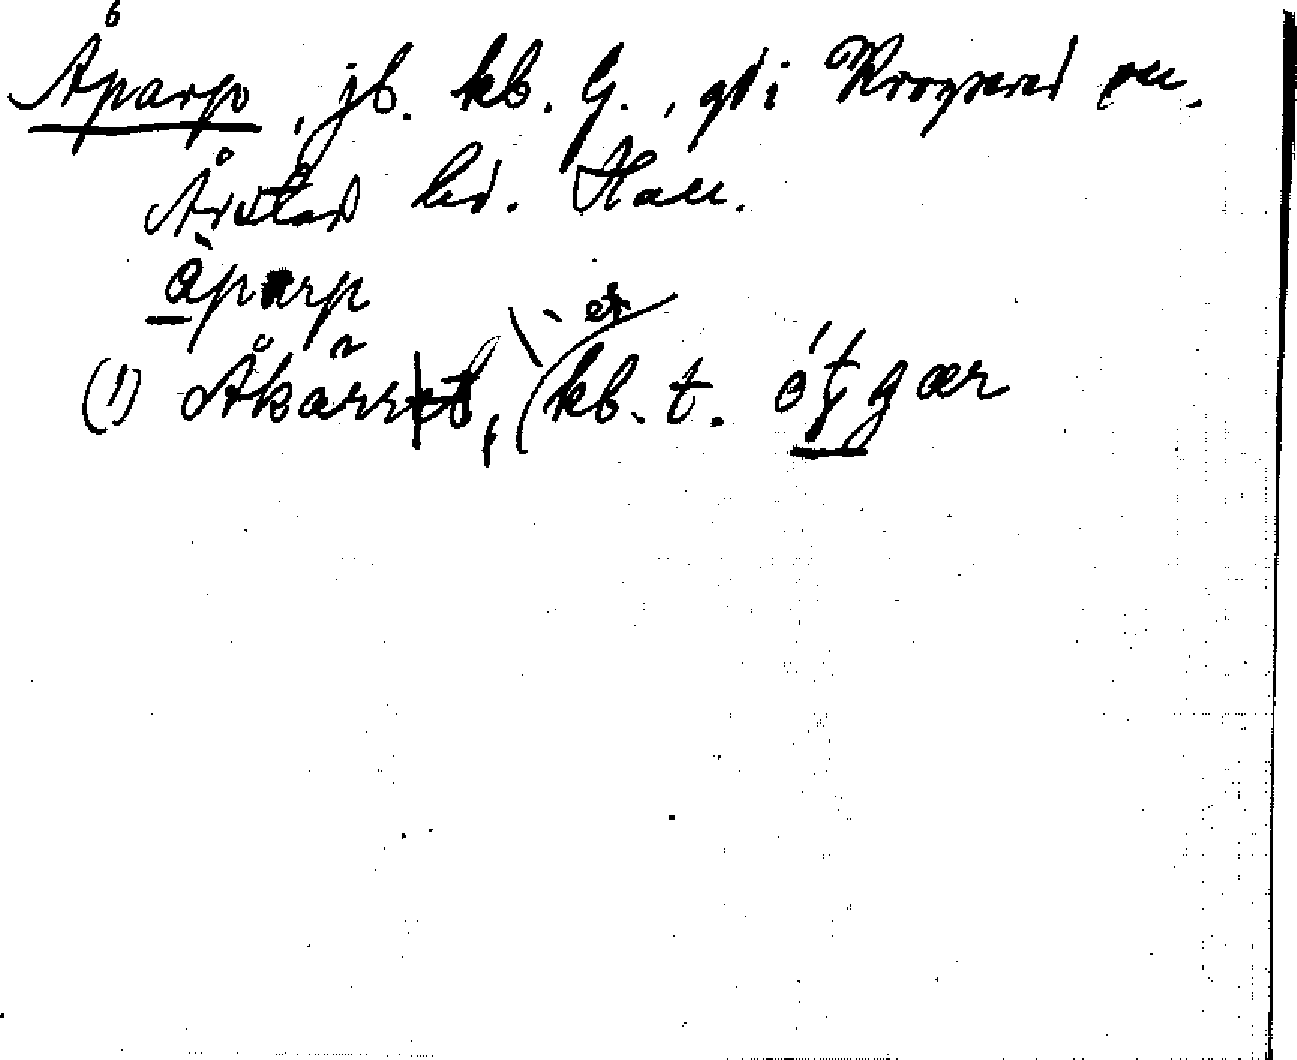 Åparp, jb. kb. G., gd i Krogsered sn,
Årstad hd. Hall.
åparp
(1) Åkärret, kb. t.